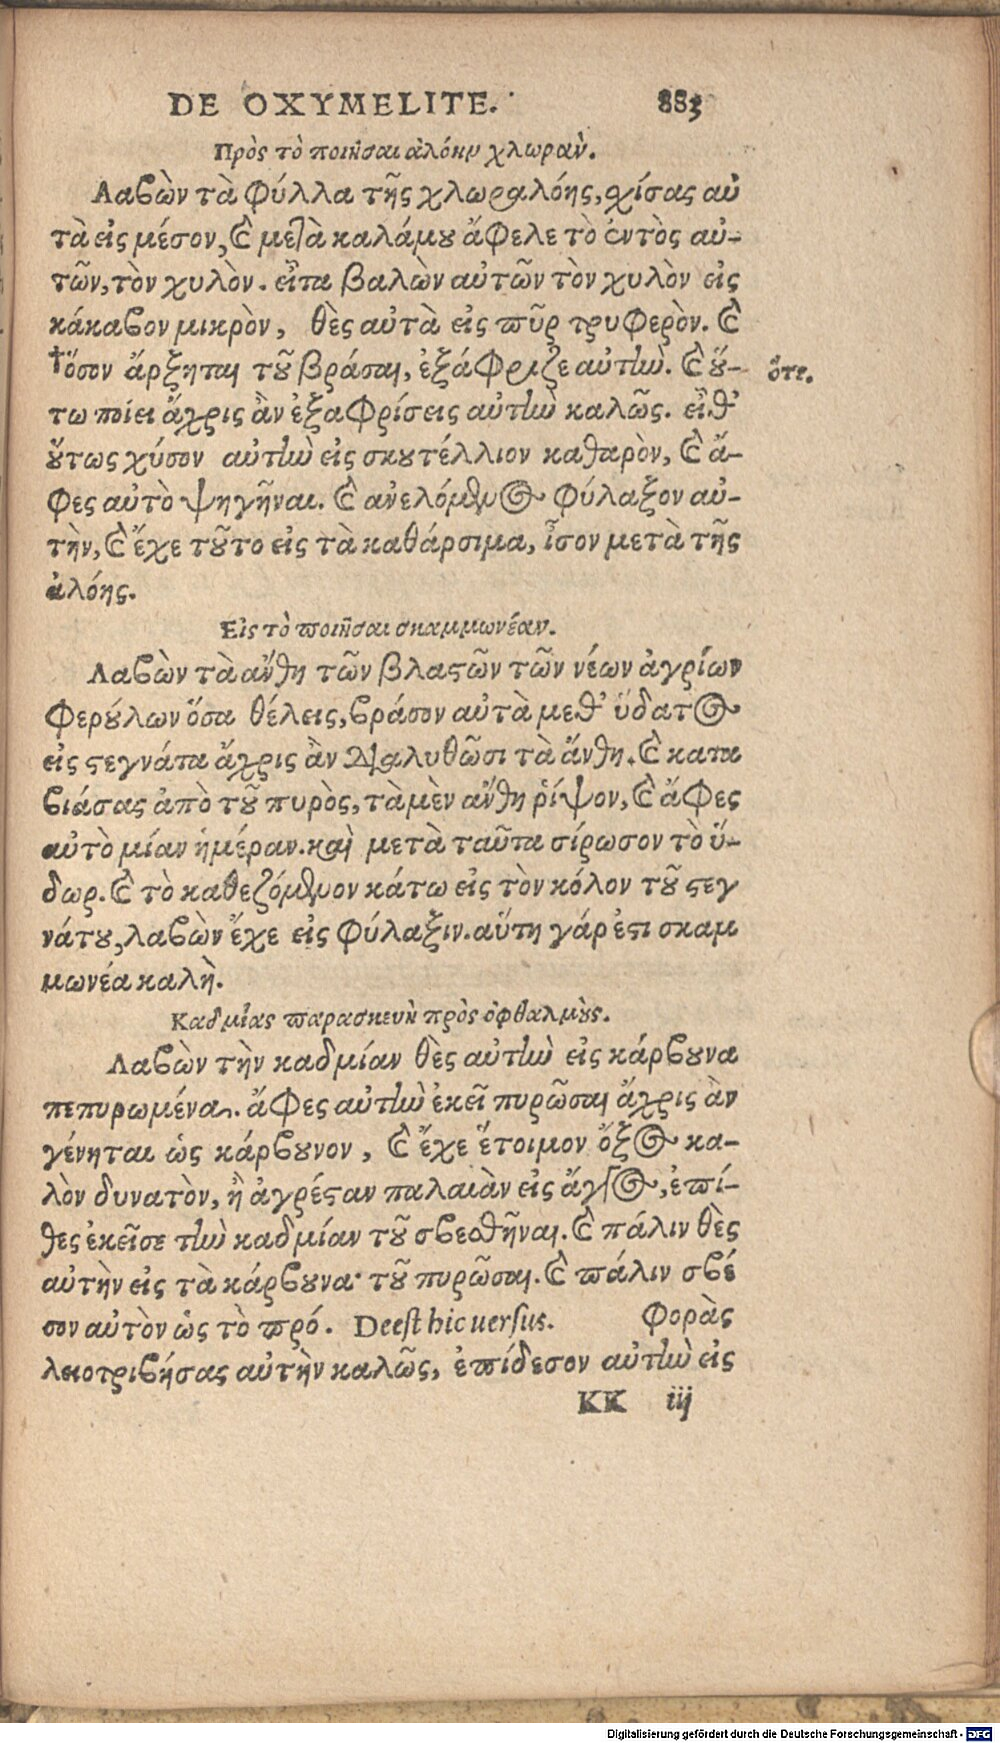 DE OXYMELITE. 883
Πρὸς τὸ ποιῆσαι ἀλόην χλωρὰν.
Λαβὼν τὰ φύλλα τῆς χλωραλόης, σχίσας αὐ
τὰ εἰς μέσον, καὶ μετὰ καλάμου ἄφελε τὸ ἐντὸς αὐ-
τῶν, τὸν χυλὸν. εἶτα βαλὼν αὐτῶν τὸν χυλὸν εἰς
κάκαβον μικρὸν, θὲς αὐτὰ εἰς πῦρ τρυφερὸν. καὶ
†ὅσον ἄρξηται τοῦ βράσαι, ἐξάφριζε αὐτὴν. καὶ οὕ- ὅτε.
τω ποίει ἄχρις ἂν ἐξαφρίσεις αὐτὴν καλῶς. εἶθ'
οὕτως χύσον αὐτὴν εἰς σκουτέλλιον καθαρὸν, καὶ ἄ-
φες αὐτὸ ψηγῆναι. καὶ ἀνελόμενος φύλαξον αὐ-
τὴν, καὶ ἔχε τοῦτο εἰς τὰ καθάρσιμα, ἶσον μετὰ τῆς
ἀλόης.
Εἰς τὸ ποιῆσαι σκαμμωνέαν.
Λαβὼν τὰ αἄνθη τῶν βλαστῶν τῶν νέων ἀγρίων
φερούλων ὅσα θέλεις, βράσον αὐτὰ μεθ' ὕδατος
εἰς στεγνάτα ἄχρις ἂν διαλυθῶσι τὰ ἄνθη. καὶ κατα
βιάσας ἀπὸ τοῦ πυρὸς, τὰ μὲν ἄνθη ῥίψον, καὶ ἄφες
αὐτὸ μίαν ἡμέραν. καὶ μετὰ ταῦτα σίρωσον τὸ ὕ-
δωρ. καὶ τὸ καθεζόμενον κάτω εἰς τὸν κόλον τοῦ στεγ
νάτου, λαβὼν ἔχε εἰς φύλαξιν. αὕτη γάρ ἐστι σκαμ
μωνέα καλὴ.
Καδμίας παρασκευὴν πρὸς ὀφθαλμοὺς.
Λαβὼν τὴν καδμίαν θὲς αὐτὴν εἰς κάρβουνα
πεπυρωμένα. ἄφες αὐτὴν ἐκεῖ πυρῶσαι ἄχρις ἂν
γένηται ὡς κάρβουνον, καὶ ἔχε ἕτοιμον ὄξος κα-
λὸν δυνατὸν, ἢ ἀγρέσταν παλαιὰν εἰς ἄγγος, ἐπί-
θες ἐκεῖσε τὴν καδμίαν τοῦ σβεσθῆναι. καὶ πάλιν θὲς
αὐτὴν εἰς τὰ κάρβουνα· τοῦ πυρῶσαι. καὶ πάλιν σβέ
σον αὐτὸν ὡς τὸ πρό. Deest hic uersus. φορὰς
λειοτριβήσας αὐτὴν καλῶς, ἐπίδεσον αὐτὴν εἰς
KK iij
Digitalisierung gefördert durch die Deutsche Forschungsgemeinschaft - DFG